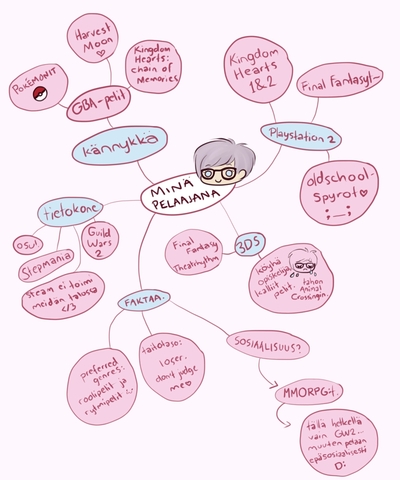 MINÄ
PELAAJANA
kännykkä
GBA-pelit
POKÉMONIT
Harvest
Moon
♡
Kingdom
Hearts:
chain of
Memories
Playstation 2
Kingdom
Hearts
1&2
Final Fantasyt~
oldschool-
spyrot♡
;__;
3DS
Final
Fantasy
Theatrhythm
köyhä
opiskelija,
kalliit
pelit.
tahon
Animal
Crossingin.
tietokone
osu!
Stepmania
Guild
Wars
2
Steam ei toimi
meidän talossa
</3
FAKTAA.
preferred
genres:
roolipelit ja
rytmipelit
taitotaso:
loser.
dont judge
me♡
SOSIAALISUUS?
MMORPGit.
tällä hetkellä
vain GW2...
muuten pelaan
epäsosiaalisesti
D: